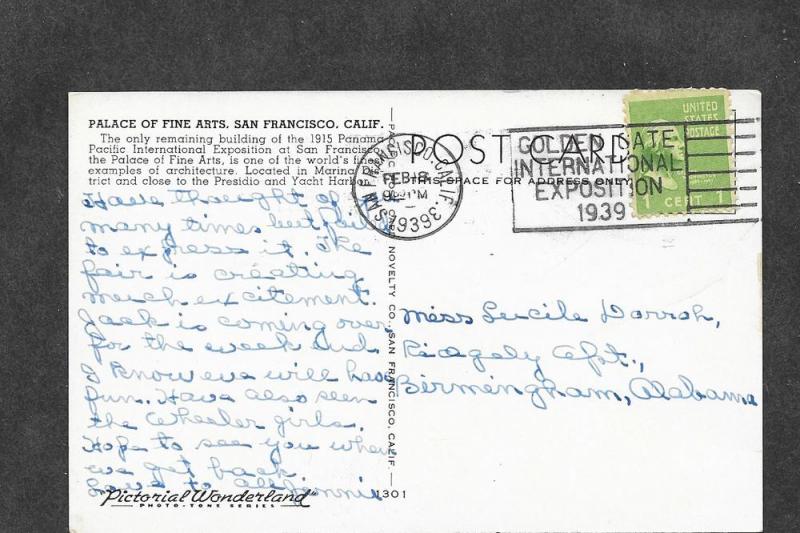 PALACE OF FINE ARTS, SAN FRANCISCO, CALIF.
The only remaining building of the 1915 Panama
Pacific International Exposition at San Francisco,
the Palace of Fine Arts, is one of the world's finest
examples of architecture. Located in Marina
trict and close to the Presidio and Yacht Harbor
Have thought of
many times but failed
to express it. The
fair is creating
much excitement.
Jack is coming over
for the week end.
I know we will have
fun. Have also seen
the Wheeler girls.
Hope to see you when
we get back
Love to all Jennie
Pictorial Wonderland
PHOTO-TONE SERIES
NOVELTY CO., SAN FRANCISCO, CALIF.
1301
POST CARD
THIS SPACE FOR ADDRESS ONLY
SAN FRANCISCO, CALIF.
FEB 18
PM
1939
GOLDEN GATE
INTERNATIONAL
EXPOSITION
1939
UNITED
STATES
POSTAGE
1 CENT 1
Miss Lucile Darroh,
Ridgely Apt.,
Birmingham, Alabama